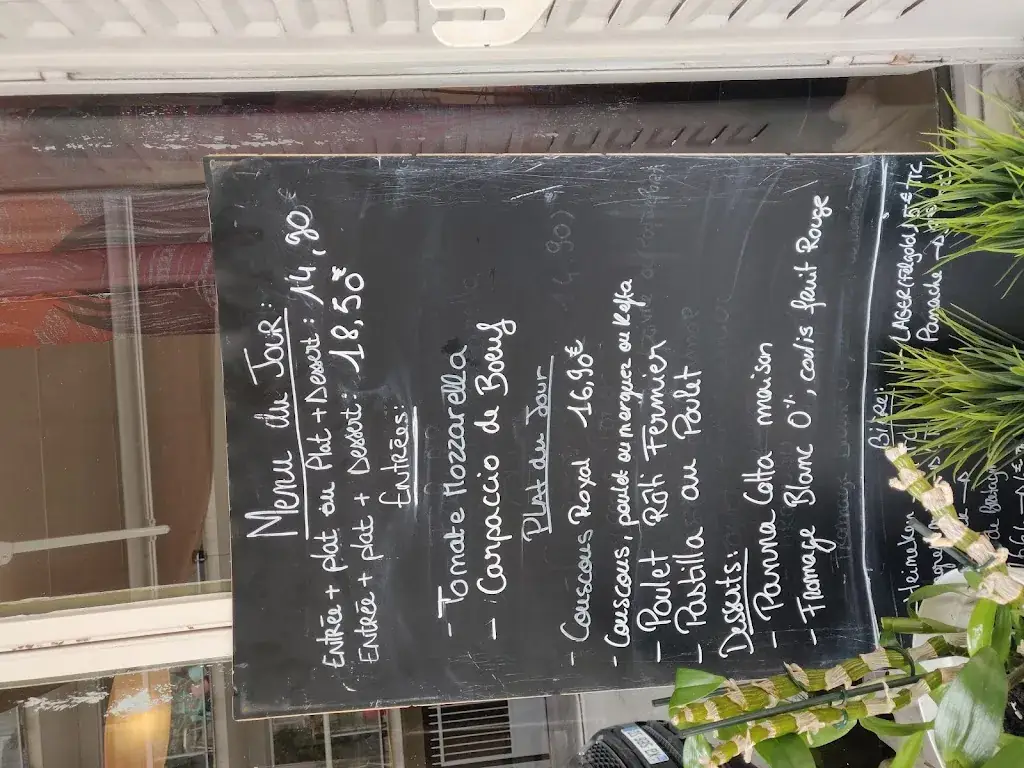 Menu du Jour:
Entrée + plat ou Plat + Dessert: 14,90€
Entrée + plat + Dessert: 18,50€
Entrées:
- Tomate Mozzarella
- Carpaccio de Boeuf
Plat du Jour
- Couscous Royal 16,90€
- Couscous, poulet ou merguez ou Kefta
- Poulet Rôti Fermier
- Pastilla au Poulet
Desserts:
- Panna Cotta maison
- Fromage Blanc 0%, coulis fruit Rouge
Bière:
LAGER
Panache